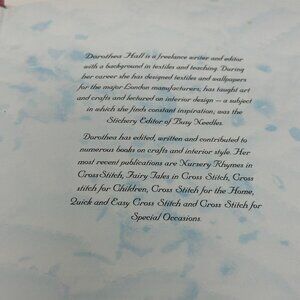 Dorothea Hall is a freelance writer and editor
with a background in textiles and teaching. During
her career she has designed textiles and wallpapers
for the major London manufacturers, has taught art
and crafts and lectured on interior design – a subject
in which she finds constant inspiration, was the
Stichery Editor of Busy Needles.
Dorothea has edited, written and contributed to
numerous books on crafts and interior style. Her
most recent publications are Nursery Rhymes in
Cross Stitch, Fairy Tales in Cross Stitch, Cross
stitch for Children, Cross Stitch for the Home,
Quick and Easy Cross Stitch and Cross Stitch for
Special Occasions.